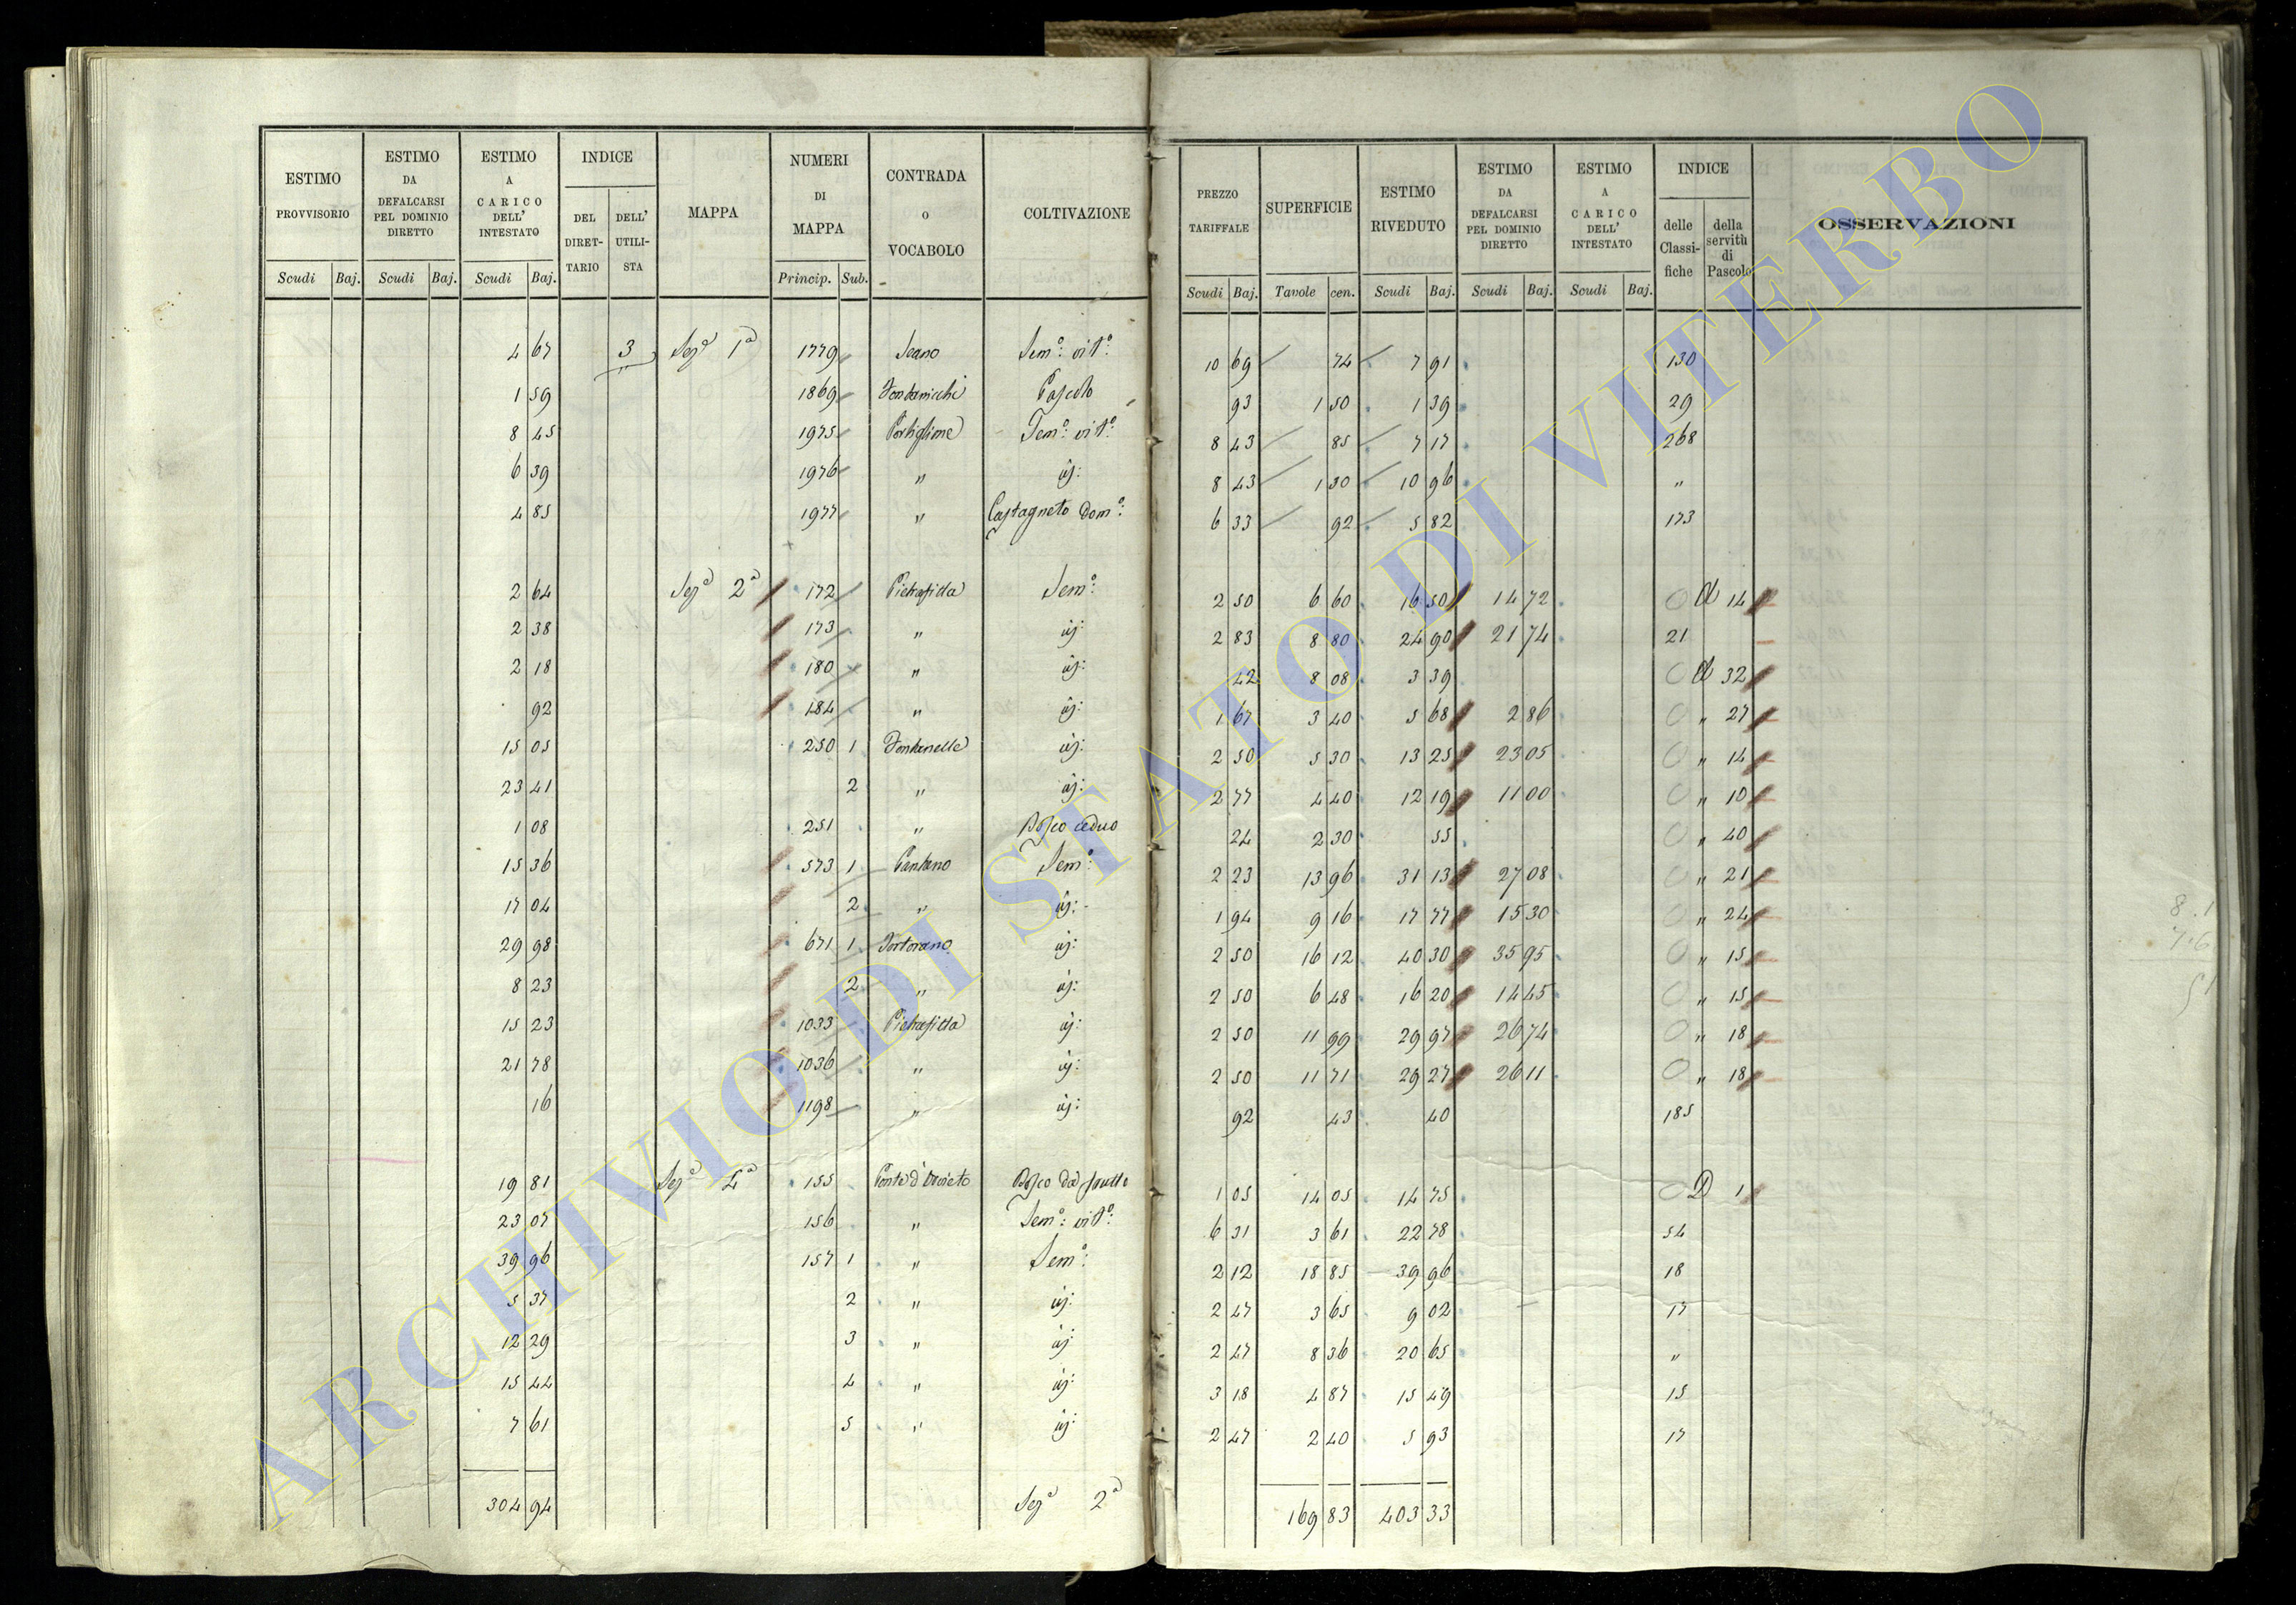 ESTIMO PROVVISORIO Scudi Baj.
ESTIMO DA DEFALCARSI PEL DOMINIO DIRETTO Scudi Baj.
ESTIMO A CARICO DELL' INTESTATO Scudi Baj.
INDICE DEL DIRETTARIO DELL' UTILISTA
MAPPA
NUMERI DI MAPPA Princip. Sub.
CONTRADA O VOCABOLO
COLTIVAZIONE
PREZZO TARIFFALE Scudi Baj.
SUPERFICIE Tavole cen.
ESTIMO RIVEDUTO Scudi Baj.
ESTIMO DA DEFALCARSI PEL DOMINIO DIRETTO Scudi Baj.
ESTIMO A CARICO DELL' INTESTATO Scudi Baj.
INDICE delle Classifiche della servitù di Pascolo
OSSERVAZIONI
4 67 3 Sezª 1ª 1779 Seano Semº: vitº: 10 69 74 7 91 130
1 59 1869 Pascolo 93 1 50 1 39 29
8 45 1975 Portiglione Semº: vitº: 8 43 85 7 17 268
6 39 1976 " 8 43 1 30 10 96 "
4 85 1977 " Castagneto Domº: 6 33 92 5 82 173
2 64 Sezª 2ª 172 Pietrafitta Semº: 2 50 6 60 16 50 14 72 14
2 38 173 " 2 83 8 80 24 90 21 74 21
2 18 180 " 42 8 08 3 39 32
92 184 " 1 67 3 40 5 68 2 86 " 27
15 05 250 1 Fontanelle 2 50 5 30 13 25 23 05 " 14
23 41 2 " 2 77 4 40 12 19 11 00 " 10
1 08 251 " Bosco ceduo 24 2 30 55 " 40
15 36 573 1 Pantano Semº: 2 23 13 96 31 13 27 08 " 21
17 04 2 " 1 94 9 16 17 77 15 30 " 24
29 98 671 1 Tortorano 2 50 16 12 40 30 35 95 " 15
8 23 2 " 2 50 6 48 16 20 14 45 " 15
15 23 1033 Pietrafitta 2 50 11 99 29 97 26 74 " 18
21 78 1036 " 2 50 11 71 29 27 26 11 " 18
16 1198 " 92 43 40 185
19 81 Sezª 4ª 155 Ponte d'Orvieto Bosco da frutto 1 05 14 05 14 75 D 1
23 07 156 " Semº: vitº: 6 31 3 61 22 78 54
39 96 157 1 " Semº: 2 12 18 85 39 96 18
5 37 2 " 2 47 3 65 9 02 17
12 29 3 " 2 47 8 36 20 65 "
15 44 4 " 3 18 4 87 15 49 15
7 61 5 " 2 47 2 40 5 93 17
304 94 Sezª 2ª 169 83 403 33
ARCHIVIO DI STATO DI VITERBO